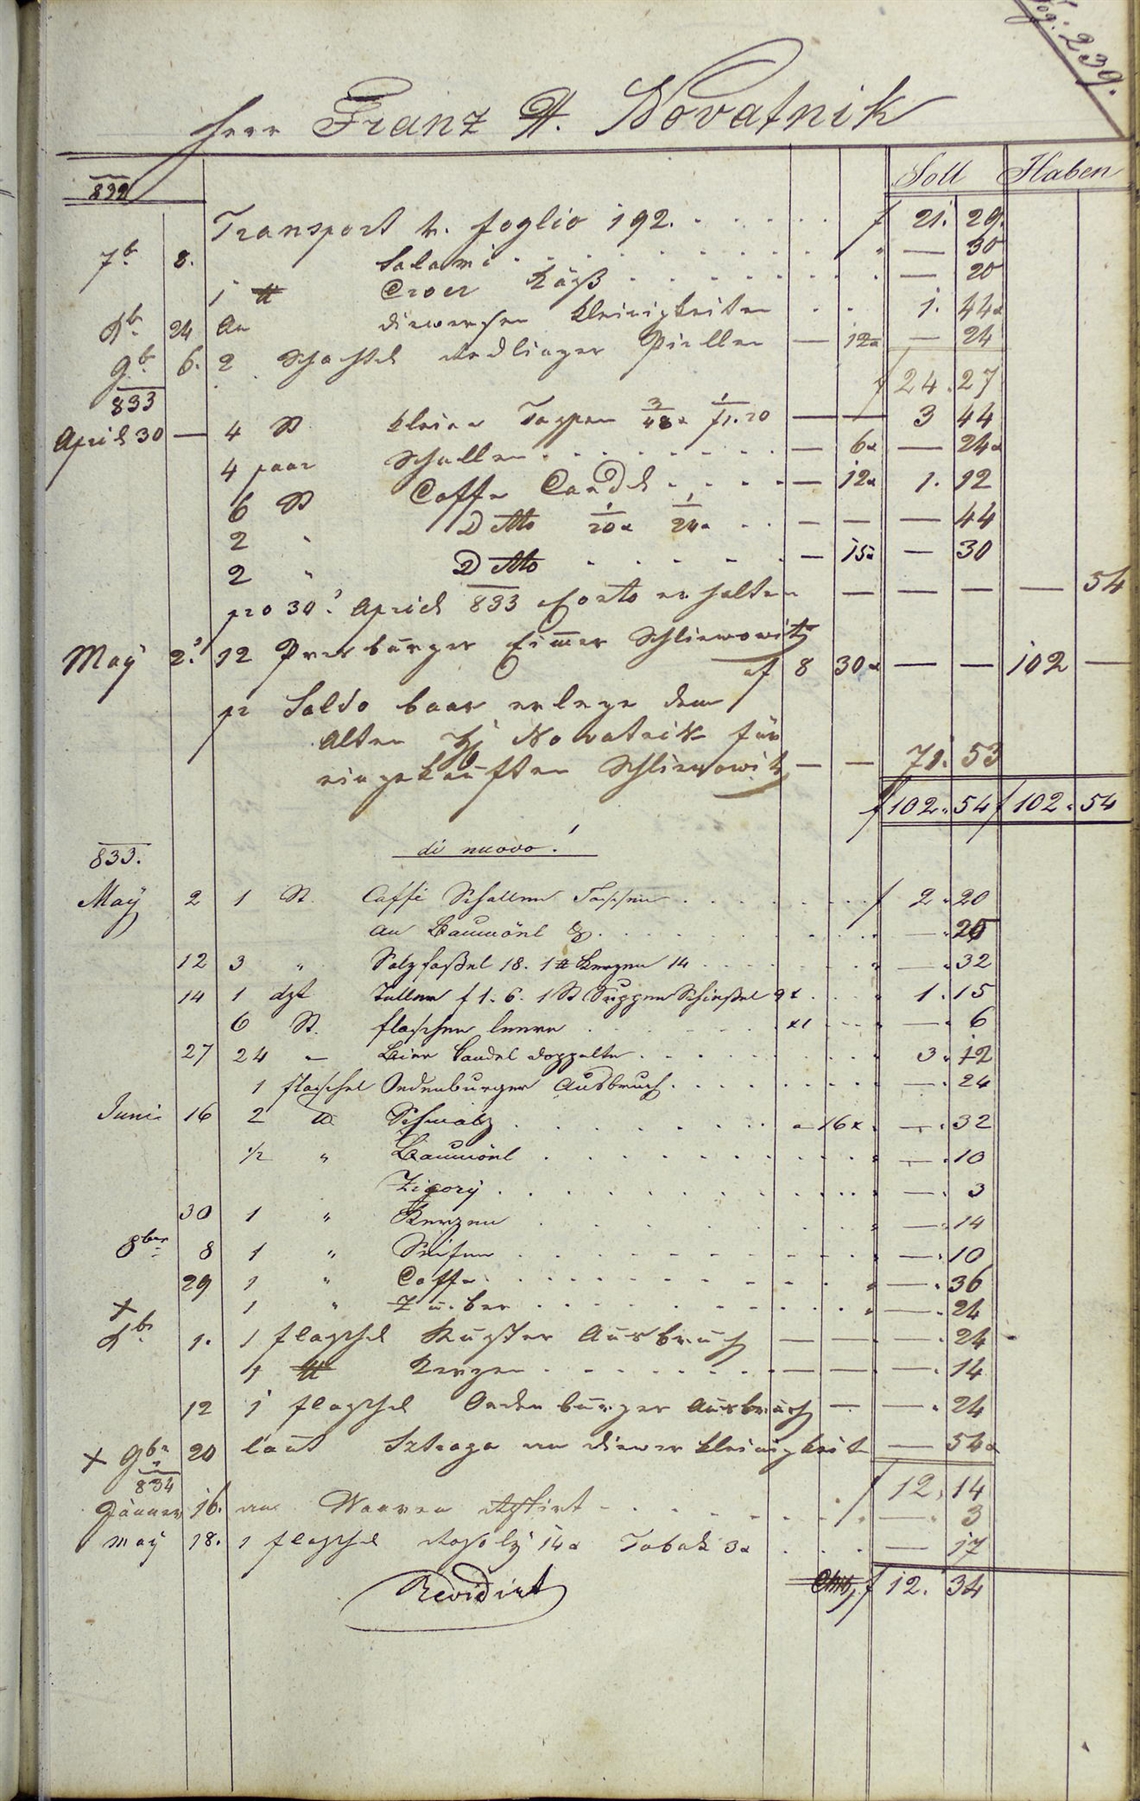 Fog: 239.
Herr Franz A. Novatnik
Soll Haben
832
Transport v. foglio 192. f 21. 29.
7br 8. Salami — 30
1 ℔ Croer Käß — 20
Xbr 24 An diwersen Kleinigkeiten 1. 44x
9br 6. 2 Schachtel Redlinger Pillen — 12x — 24
f 24. 27
833
April 30 — 4 St kleine Tazzen 3/48x 1/f1.20 — — 3 44
4 paar Schallen — 6x — 24x
6 St Caffe Candl — 12x 1. 12
2 " Detto 1/20x 1/24x — — — 44
2 " Detto — 15x — 30
pro 30t April 833 Conto erhalten — — — — — 54
May 2t 12 Presburger Eimer Schliwowitz
af 8 30x — — 102 —
pr Saldo baar erlege dem
Alten Hj Novatnik für
eingekauften Schliwowitz — — 71. 53
f 102. 54 f 102. 54
833.
di nuovo!
May 2 1 St. Caffé Schallen f 2. 20
An Baumöhl — 25
12 3 " Salzfaßel 18. 1 ℔ Kerzen 14 — 32
14 1 dzt Teller f 1. 6. 1 St Suppen Schüßel 9x 1. 15
6 St. flaschen leere x1 — 6
27 24 — Bier Candel doppelte 3. 12
1 flaschel Oedenburger Ausbruch — 24
Juni 16 2 ℔ Schmalz 16x — 32
1/2 " Baumöhl — 10
Zigory — 3
30 1 " Kerzen — 14
8ber 8 1 " Seifen — 10
29 1 " Caffe — 36
+ 1 " Zuker — 24
Xbr 1. 1 flaschel Ruster Ausbruch — — — 24
1 ℔ Kerzen — — — 14
12 1 flaschel Oedenburger Ausbruch — — 24
+ 9br 20 laut Strazza an diwer Kleinigkeit — 54x
f 12. 14
834
Jänner 16. an Waaren — 3
May 18. 1 flaschel Rosoly 14x Tabak 3x — 17
f 12. 34
Revidirt